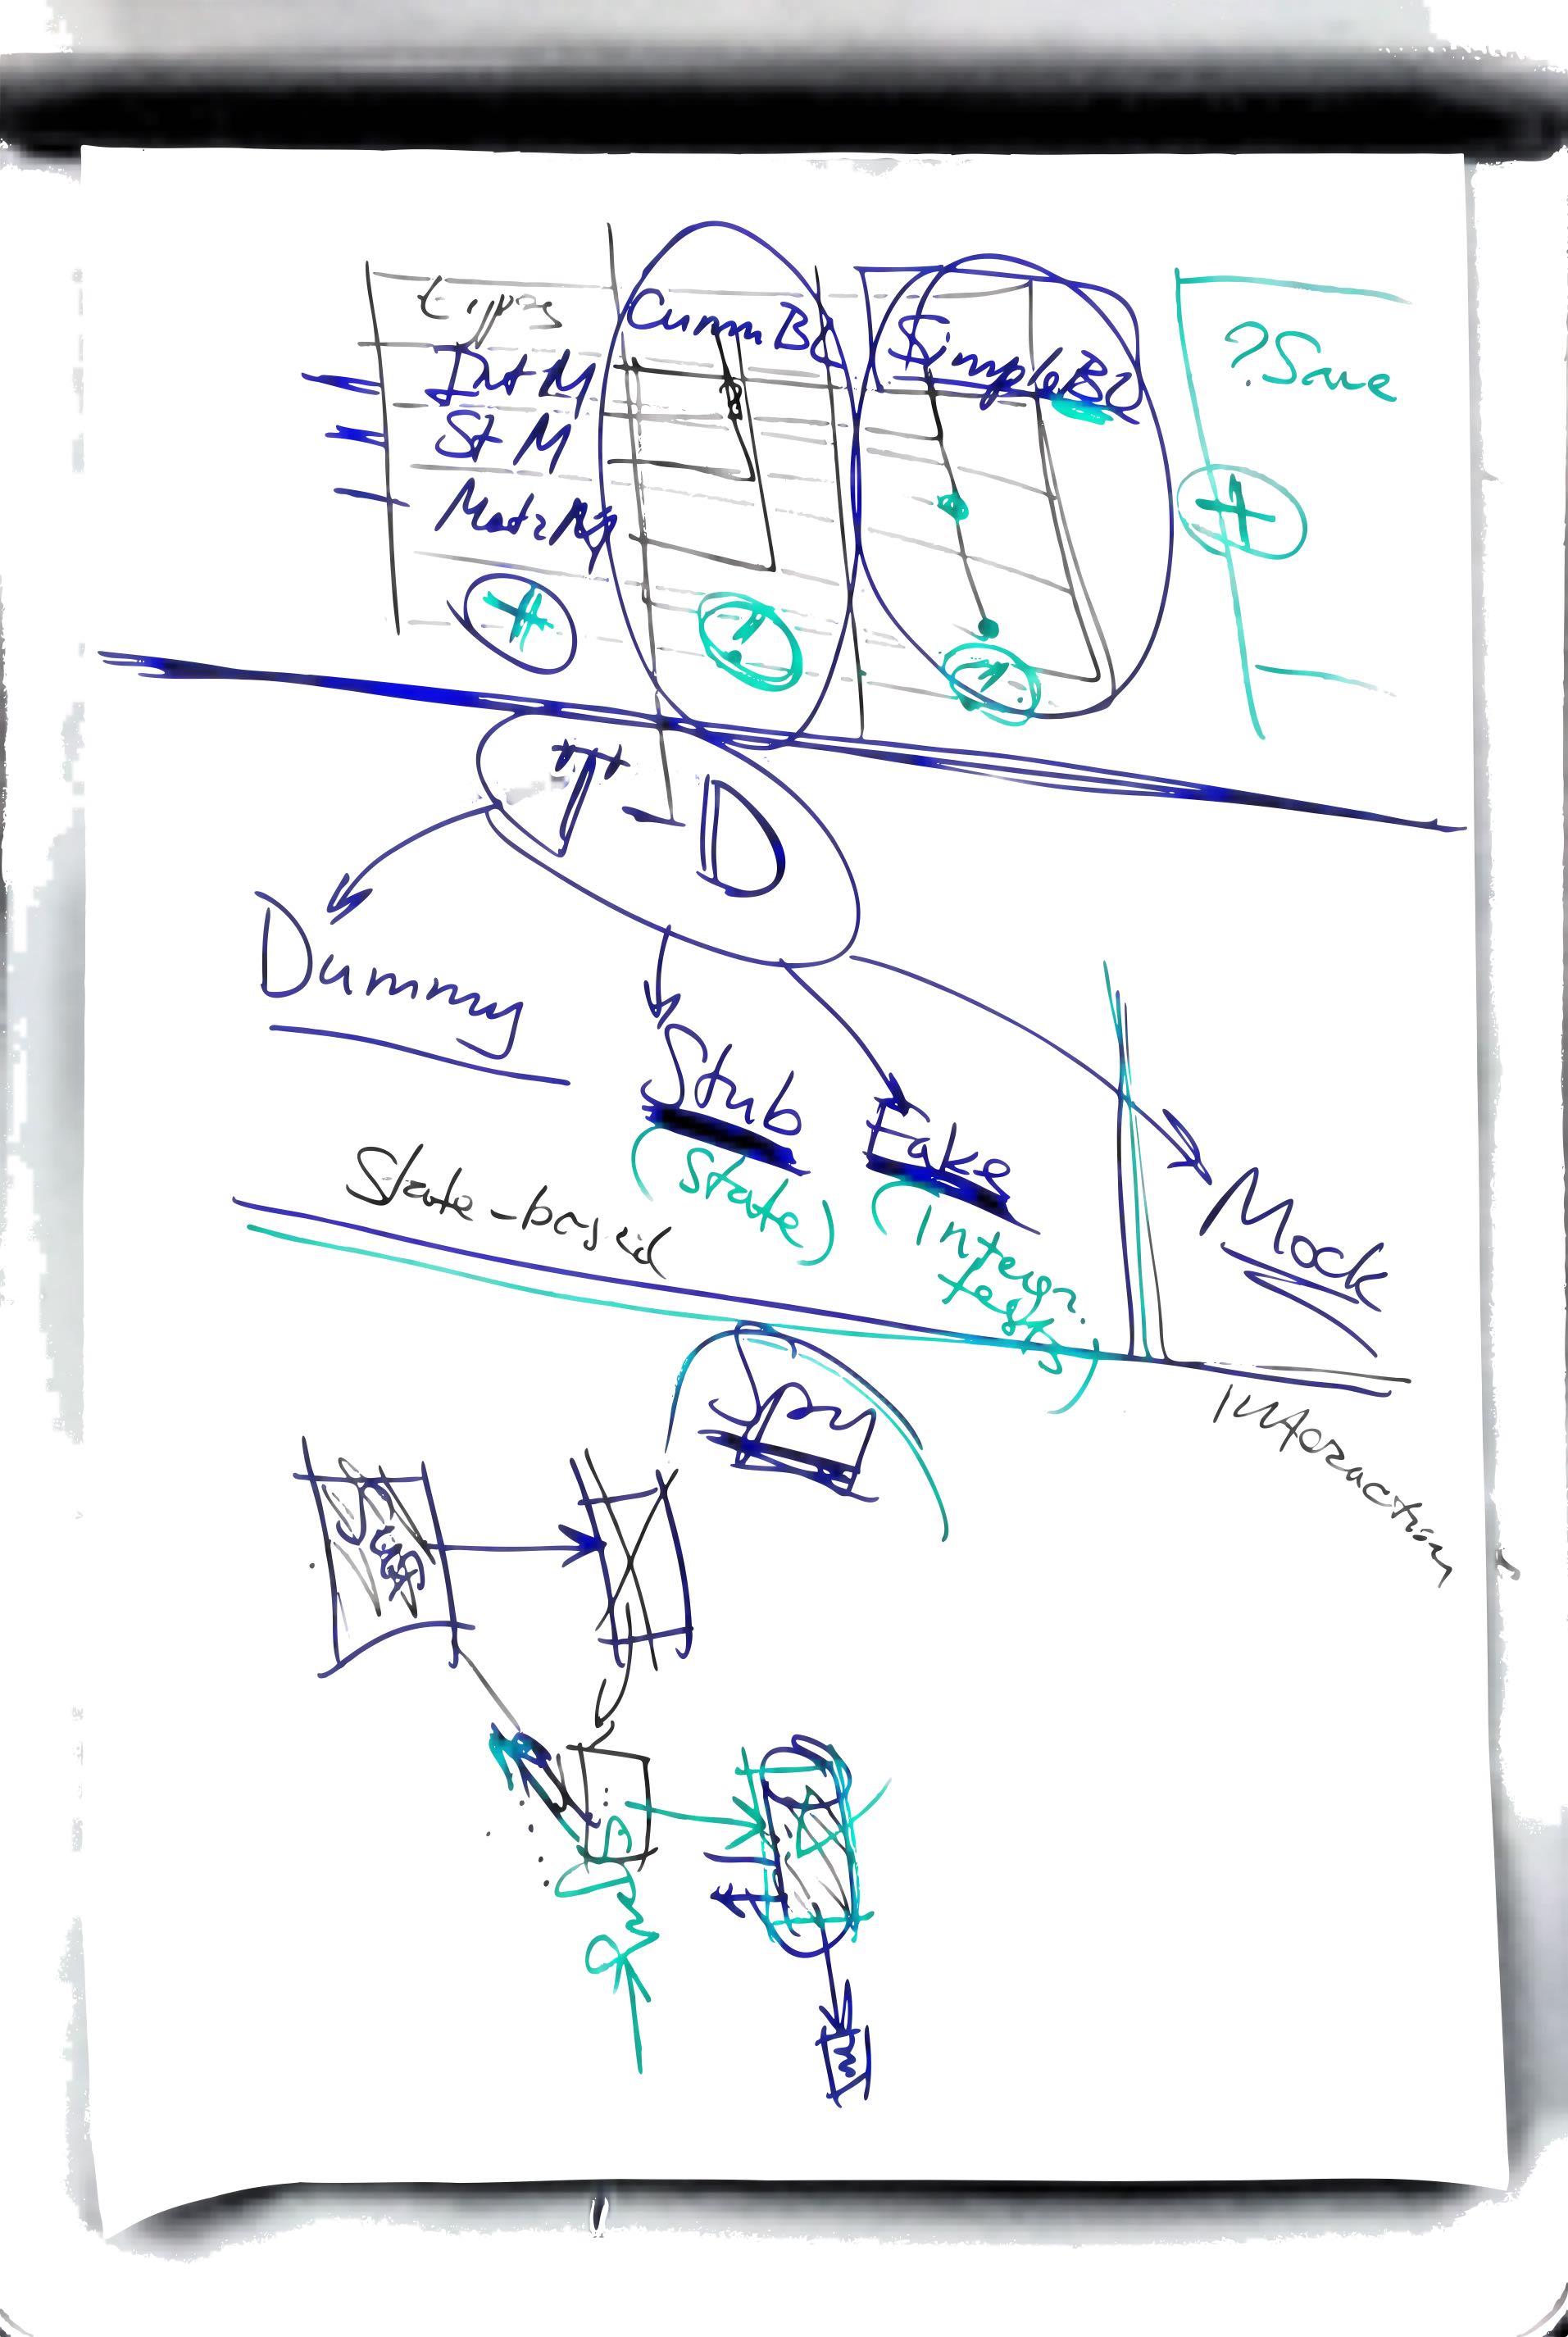 types
Cumm B
SimpleBC
?Save
Int M
St M
+
+
T-D
Dummy
Stub
(State)
Fake
(Integr.
tests)
Mock
State-based
Interaction
Spy
Spy